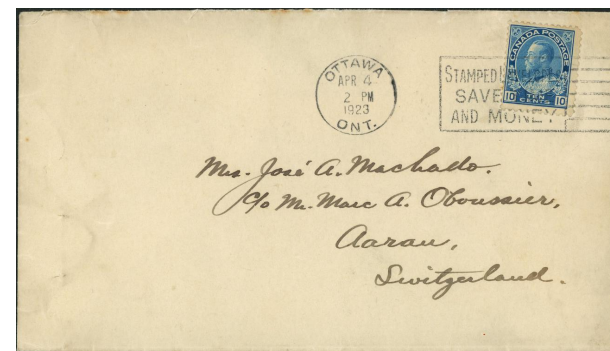 OTTAWA
APR 4
2 PM
1923
ONT.
STAMPED
SAVE
AND MONEY
CANADA POSTAGE
10 TEN CENTS 10
Mrs. José A. Machado.
c/o Mr. Marc A. Oboussier,
Aarau,
Switzerland.